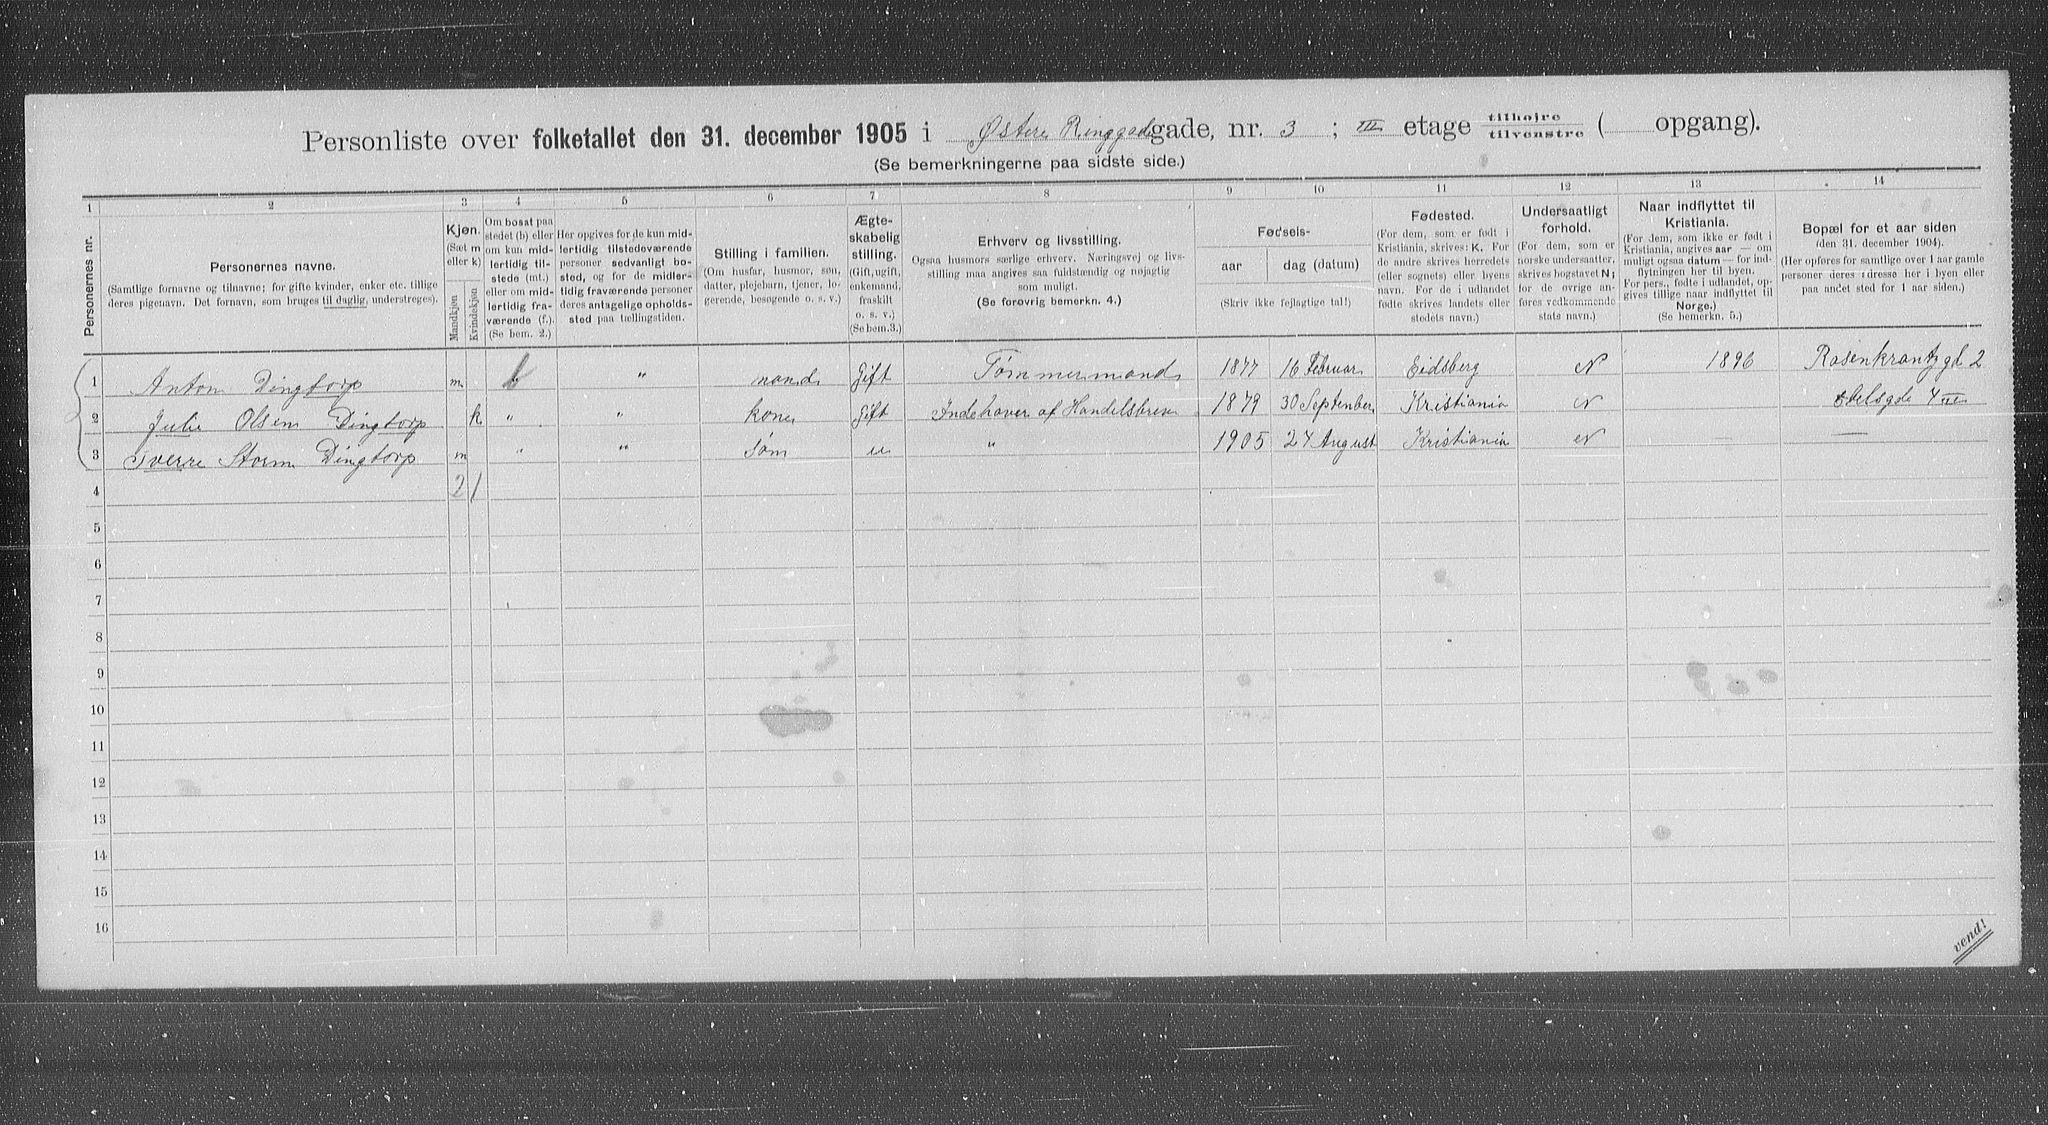 Personliste over folketallet den 31. december 1905 i Østere Ringgadegade, nr. 3 ; III etage tilhøjre / tilvenstre ( opgang).
(Se bemerkningerne paa sidste side.)
1 2 3 4 5 6 7 8 9 10 11 12 13 14
Personernes nr.
Personernes navne.
(Samtlige fornavne og tilnavne; for gifte kvinder, enker etc. tillige
deres pigenavn. Det fornavn, som bruges til daglig, understreges).
Kjøn.
(Sæt m
eller k)
Mandkjøn
Kvindekjøn
Om bosat paa
stedet (b) eller
om kun mid-
lertidig til-
stede (mt.)
eller om mid-
lertidig fra-
værende (f.).
(Se bem. 2.)
Her opgives for de kun mid-
lertidig tilstedeværende
personer sedvanligt bo-
sted, og for de midler-
tidig fraværende personer
deres antagelige opholds-
sted paa tællingstiden.
Stilling i familien.
(Om husfar, husmor, søn,
datter, plejebarn, tjener, lo-
gerende, besøgende o. s. v.)
Ægte-
skabelig
stilling.
(Gift, ugift,
enkemand,
fraskilt
o. s. v.)
(Se bem.3.)
Erhverv og livsstilling.
Ogsaa husmors særlige erhverv. Næringsvej og livs-
stilling maa angives saa fuldstændig og nøjagtig
som muligt.
(Se forøvrig bemerkn. 4.)
Fødsels-
aar
dag (datum)
(Skriv ikke fejlagtige tal!)
Fødested.
(For dem, som er født i
Kristiania, skrives: K. For
de andre skrives herredets
(eller sognets) eller byens
navn. For de i udlandet
fødte skrives landets eller
stedets navn.)
Undersaatligt
forhold.
(For dem, som er
norske undersaatter,
skrives bogstavet N;
for de øvrige an-
føres vedkommende
stats navn.)
Naar indflyttet til
Kristiania.
(For dem, som ikke er født i
Kristiania, angives aar — og om
muligt ogsaa datum — for ind-
flytningen her til byen.
For pers., fødte i udlandet, op-
gives tillige naar indflyttet til
Norge.)
(Se bemerkn. 5.)
Bopæl for et aar siden
(den 31. december 1904).
(Her opføres for samtlige over 1 aar gamle
personer deres adresse her i byen eller
paa andet sted for 1 aar siden.)
1 Anton Dingtorp m b " mand Gift Tømmermand 1877 16 Februar Eidsberg N 1896 Rosenkrantzgd 2
2 Julie Olsen Dingtorp k " " kone Gift Indehaver af Handelsbrev 1879 30 September Kristiania N 7 III
3 Sverre Storm Dingtorp m " " søn u " 1905 24 August Kristiania N — —
4 2 1
5
6
7
8
9
10
11
12
13
14
15
16
vend!